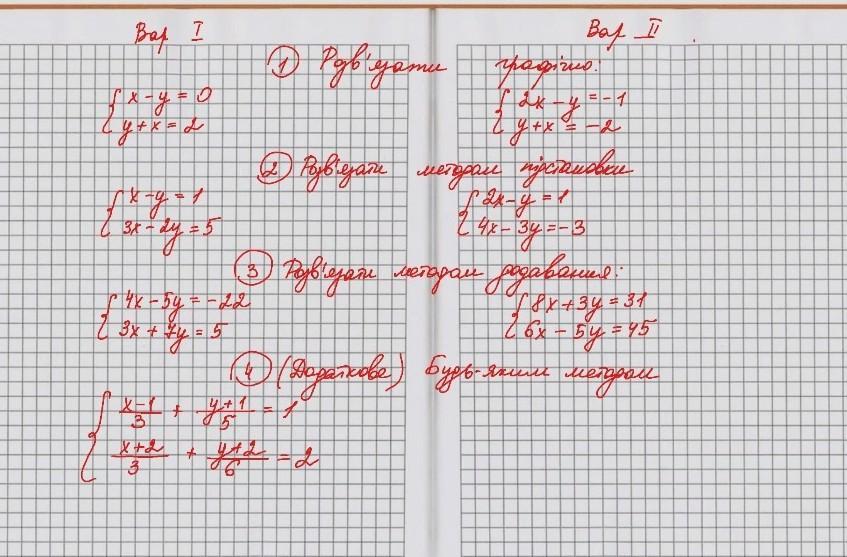 Вар I
Вар II
① Розв'язати графічно:
x - y = 0
y + x = 2
2x - y = -1
y + x = -2
② Розв'язати методом підстановки
x - y = 1
3x - 2y = 5
2x - y = 1
4x - 3y = -3
③ Розв'язати методом додавання:
4x - 5y = -22
3x + 7y = 5
8x + 3y = 31
6x - 5y = 45
④ (Додаткове) Будь-яким методом
(x-1)/3 + (y+1)/5 = 1
(x+2)/3 + (y+2)/6 = 2